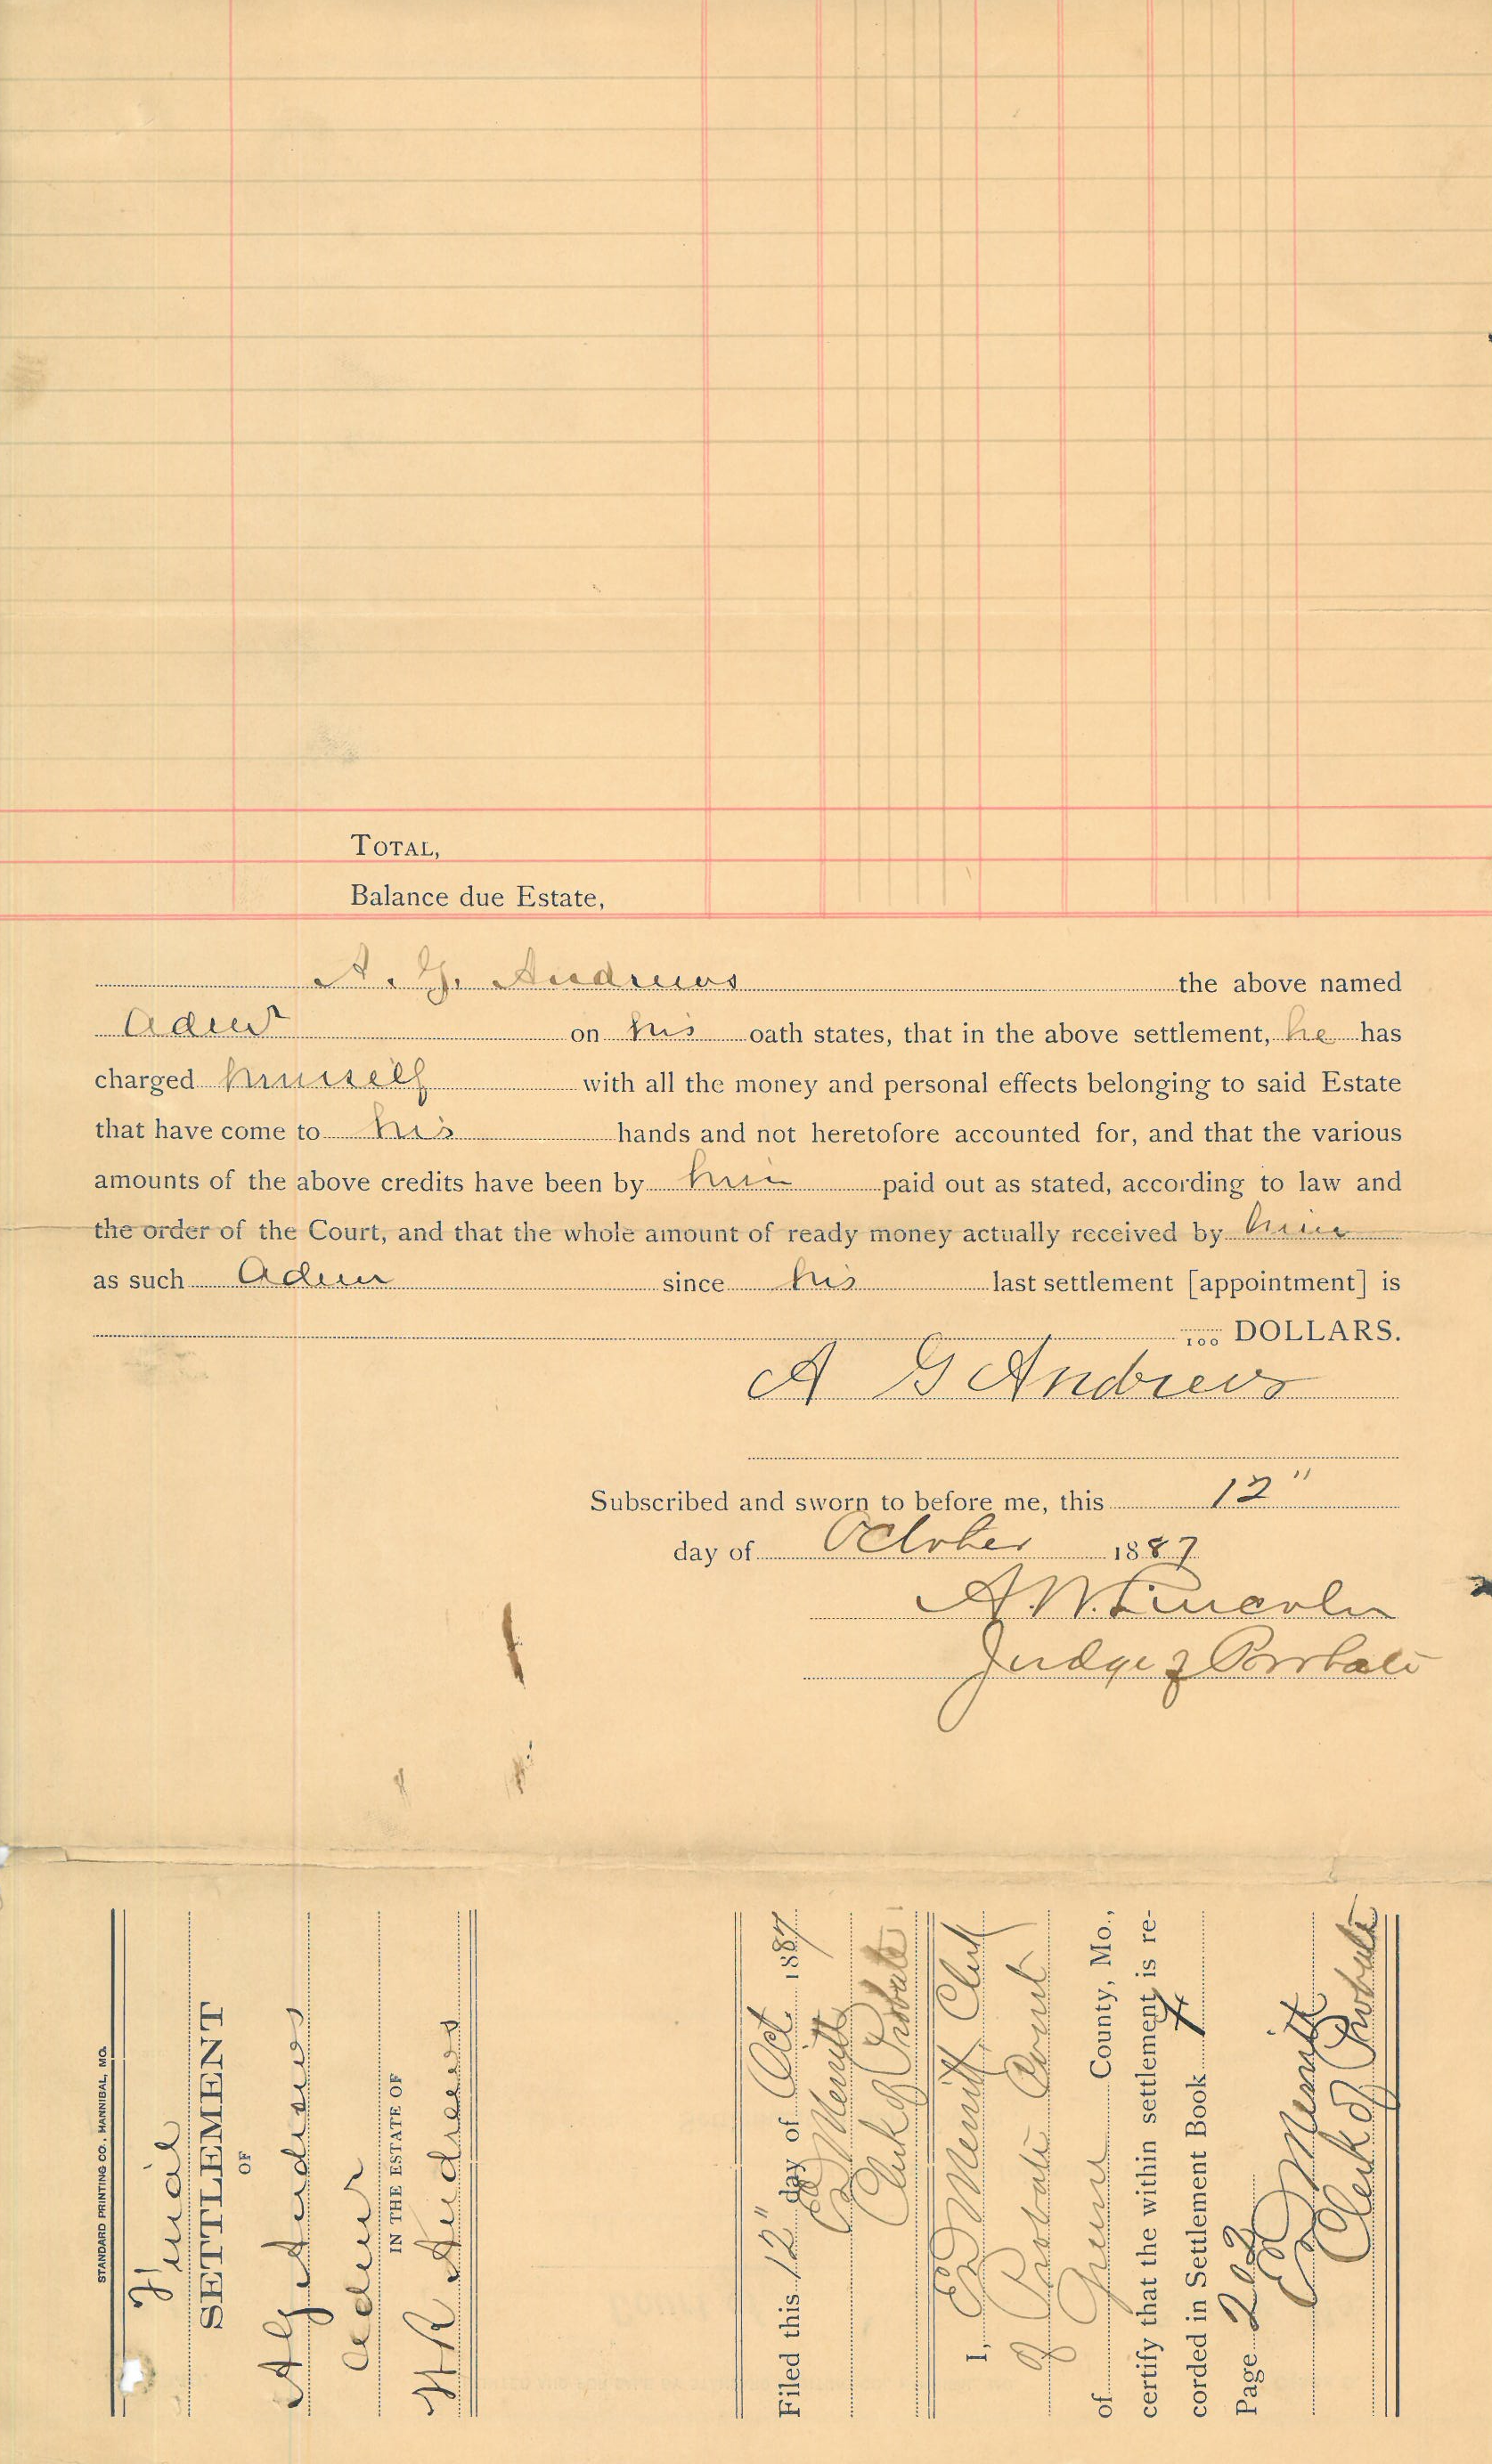 TOTAL,
Balance due Estate,
A. G. Andrews the above named
Admr on his oath states, that in the above settlement, he has
charged himself with all the money and personal effects belonging to said Estate
that have come to his hands and not heretofore accounted for, and that the various
amounts of the above credits have been by him paid out as stated, according to law and
the order of the Court, and that the whole amount of ready money actually received by him
as such Admr since his last settlement [appointment] is
100 DOLLARS.
A G Andrews
Subscribed and sworn to before me, this 12"
day of October 1887
A. W. Lincoln
Judge of Probate
STANDARD PRINTING CO., HANNIBAL, MO.
Final
SETTLEMENT
OF
A G Andrews
Admr
IN THE ESTATE OF
H R Andrews
Filed this 12" day of Oct 1887
Ed Merritt
Clerk of Probate
I, Ed Merritt, Clerk
of Probate Court
of Green County, Mo.,
certify that the within settlement is re-
corded in Settlement Book
Page 202
Ed Merritt
Clerk of Probate